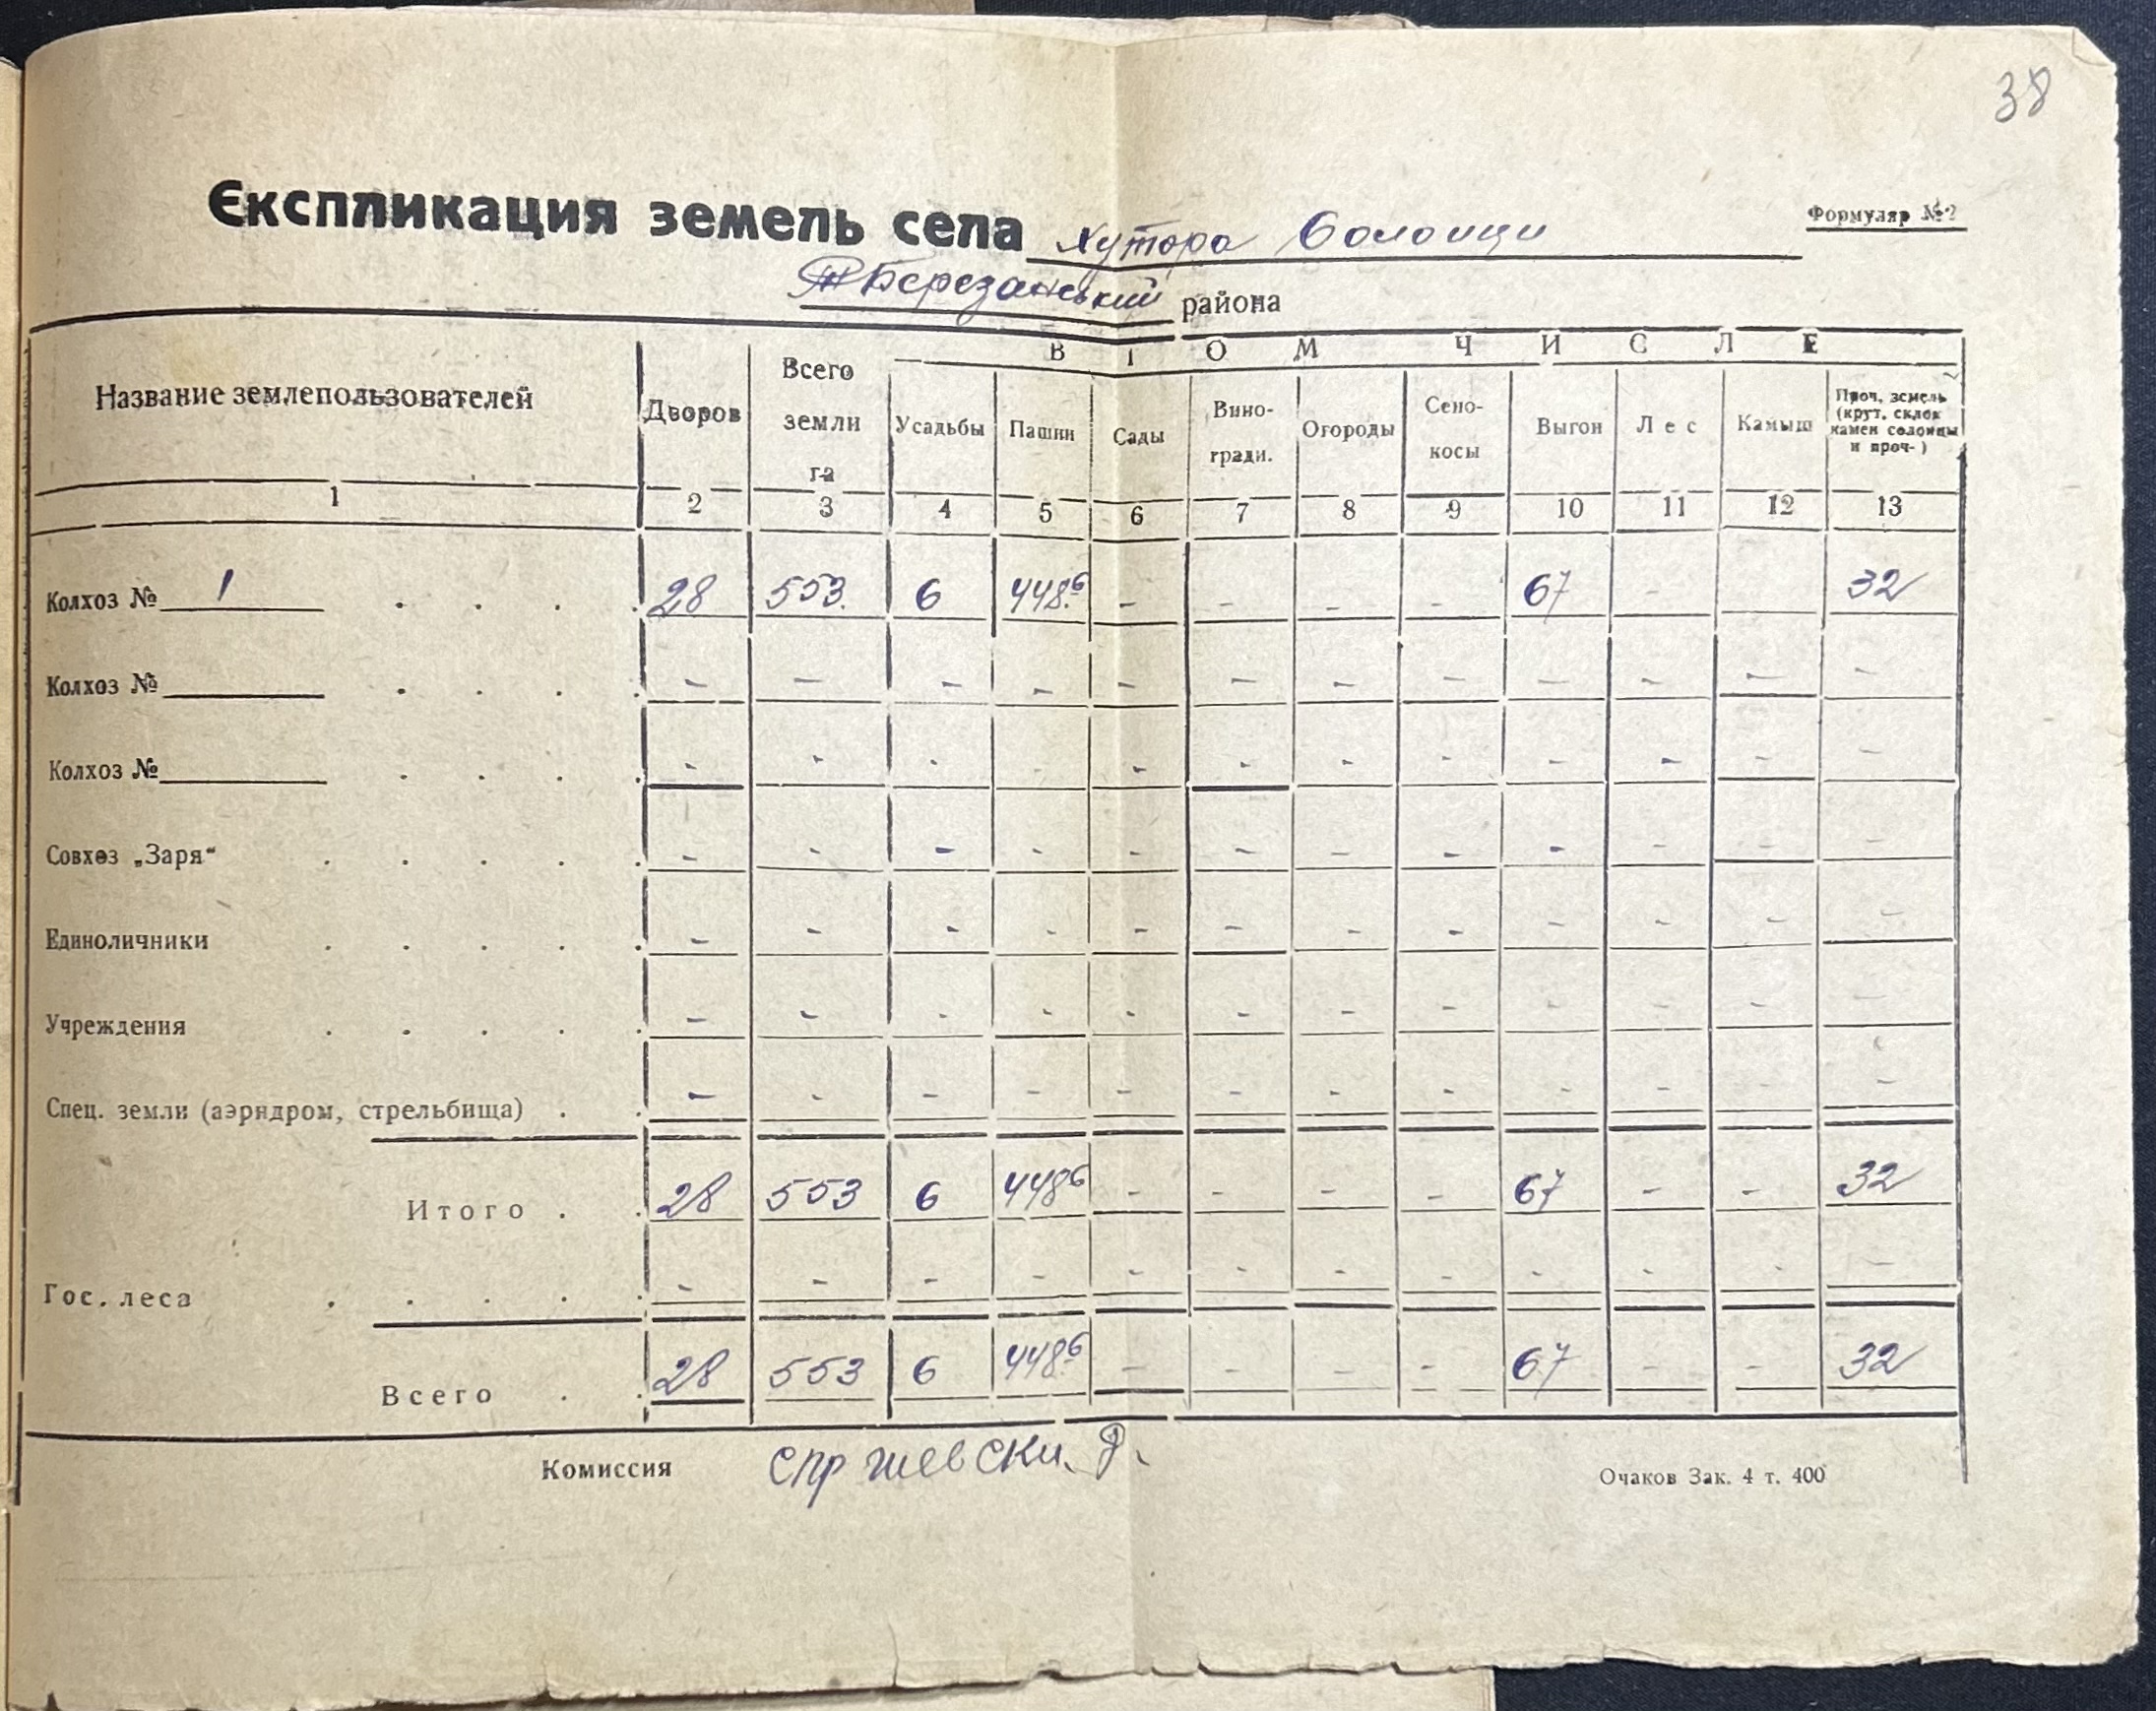 38
Експликация земель села хутора Солонци
Формуляр №2
Т Березанський района
Название землепользователей
Дворов
Всего земли га
В ТОМ ЧИСЛЕ
Усадьбы
Пашни
Сады
Вино-гради.
Огороды
Сено-косы
Выгон
Лес
Камыш
Проч. земель (крут. склок камен солонцы и проч-)
1 2 3 4 5 6 7 8 9 10 11 12 13
Колхоз № 1 . . . . 28 553. 6 448.6 - - - - 67 - 32
Колхоз № . . . . - - - - - - - - - - - -
Колхоз № . . . . - - - - - - - - - - - -
Совхоз „Заря“ . . . . . - - - - - - - - - - - -
Единоличники . . . . . - - - - - - - - - - - -
Учреждения . . . . . - - - - - - - - - - - -
Спец. земли (аэрндром, стрельбища) . . - - - - - - - - - - - -
Итого . . 28 553 6 448.6 - - - - 67 - - 32
Гос. леса . . . . . - - - - - - - - - - - -
Всего . . 28 553 6 448.6 - - - - 67 - - 32
Комиссия
Очаков Зак. 4 т. 400